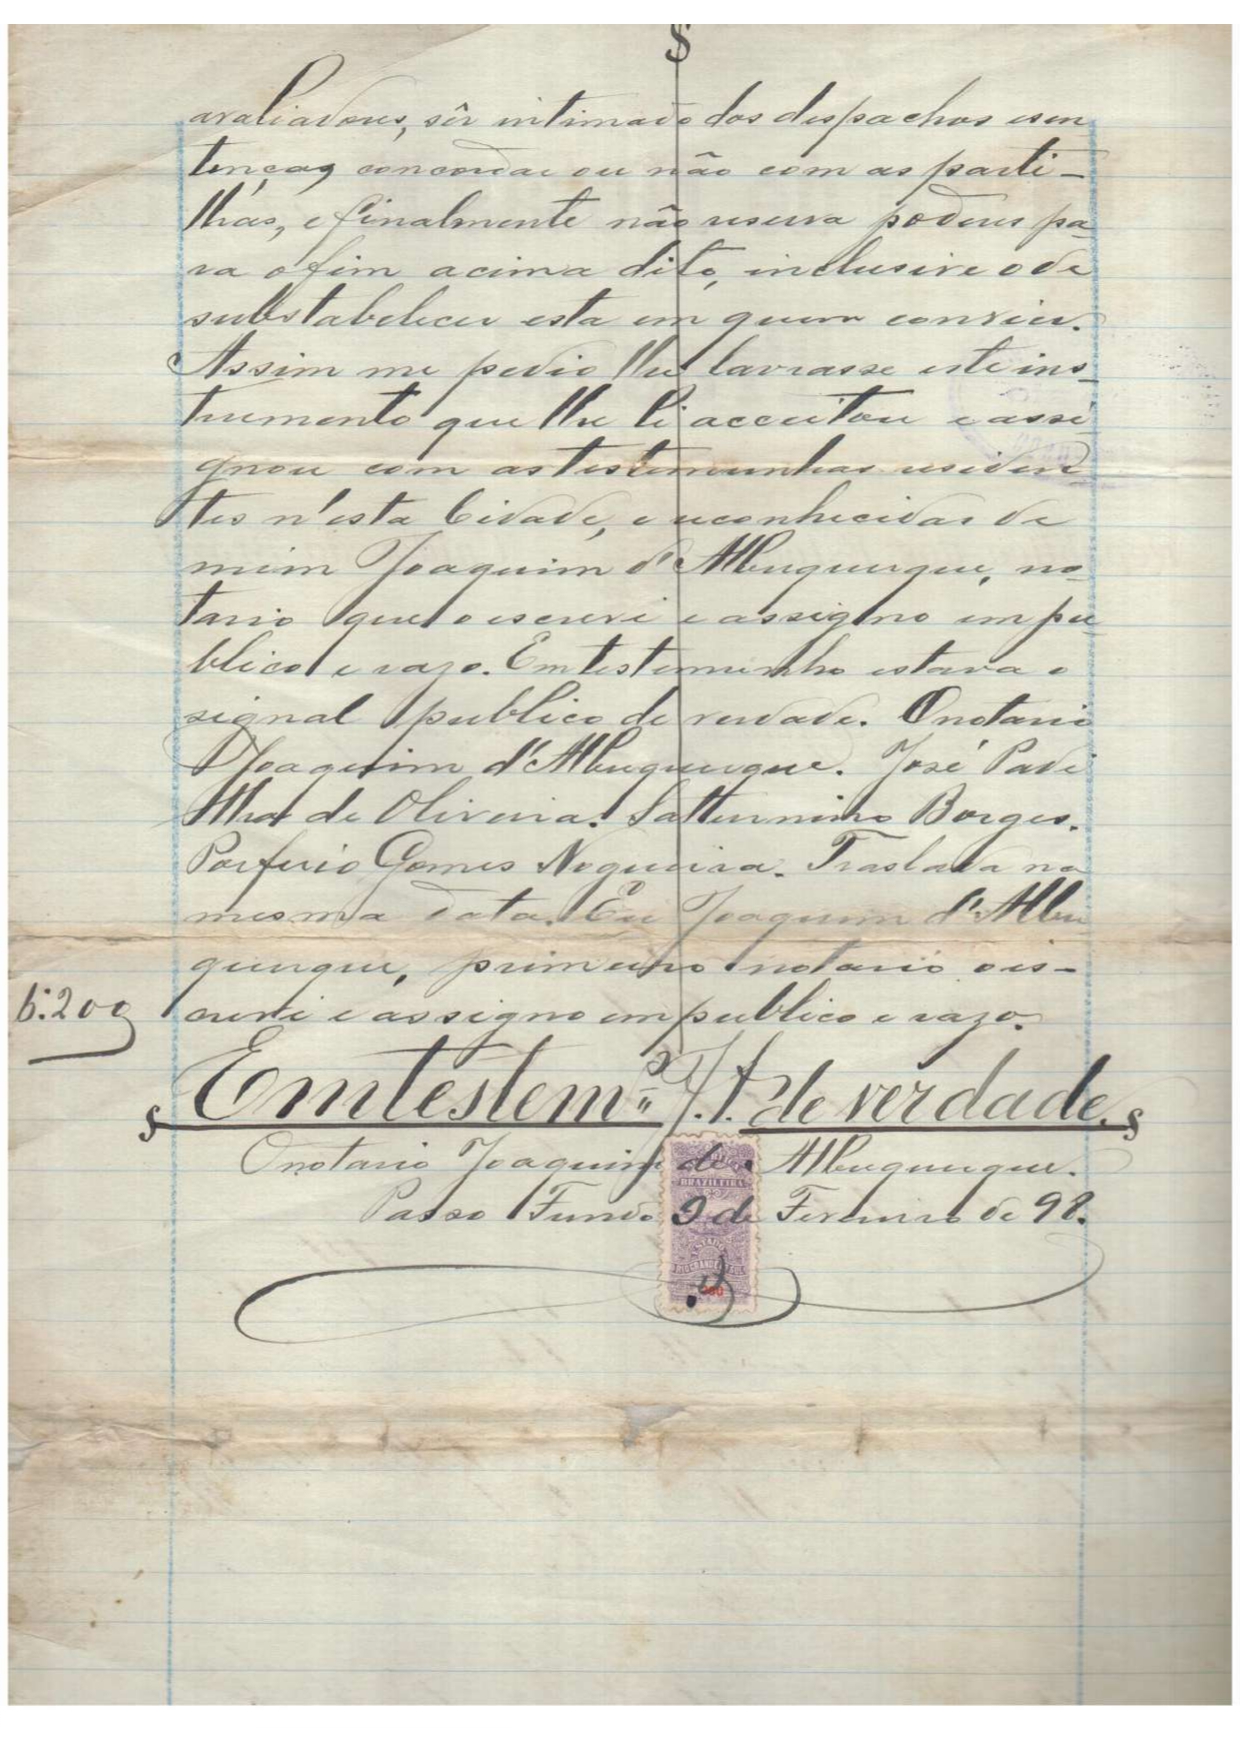 $
avaliadores, sêr intimado dos despachos esen
tenças, concordar ou não com as parti-
lhas, e finalmente não reserva poderes pa
ra o fim acima dito, inclusive o de
substabelecer esta em quem convier.
Assim me pedio lhe lavrasse este ins-
trumento que lhe li acceitou e assi
gnou com as testemunhas residen
tes n'esta Cidade, e reconhecidas de
mim Joaquim d'Albuquerque, no-
tario que o escrevi e assigno em pu
blico e razo. Em testeminho estava o
signal publico de verdade. O notario
Joaquim d'Albuquerque. José Padi
lha de Oliveira. Satturnino Borges.
Porferio Gomes Nogueira. Traslada na
mesma data. Eu Joaquim d'Albu
querque, primeiro notario o es-
crevi e assigno em publico e razo.
6:200
Emtestemº J.A. de verdade.
O notario Joaquim de Albuquerque.
BRAZILEIRA
Passo Fundo 9 de Fevereiro de 98.
ESTADO
RIO GRANDE SUL